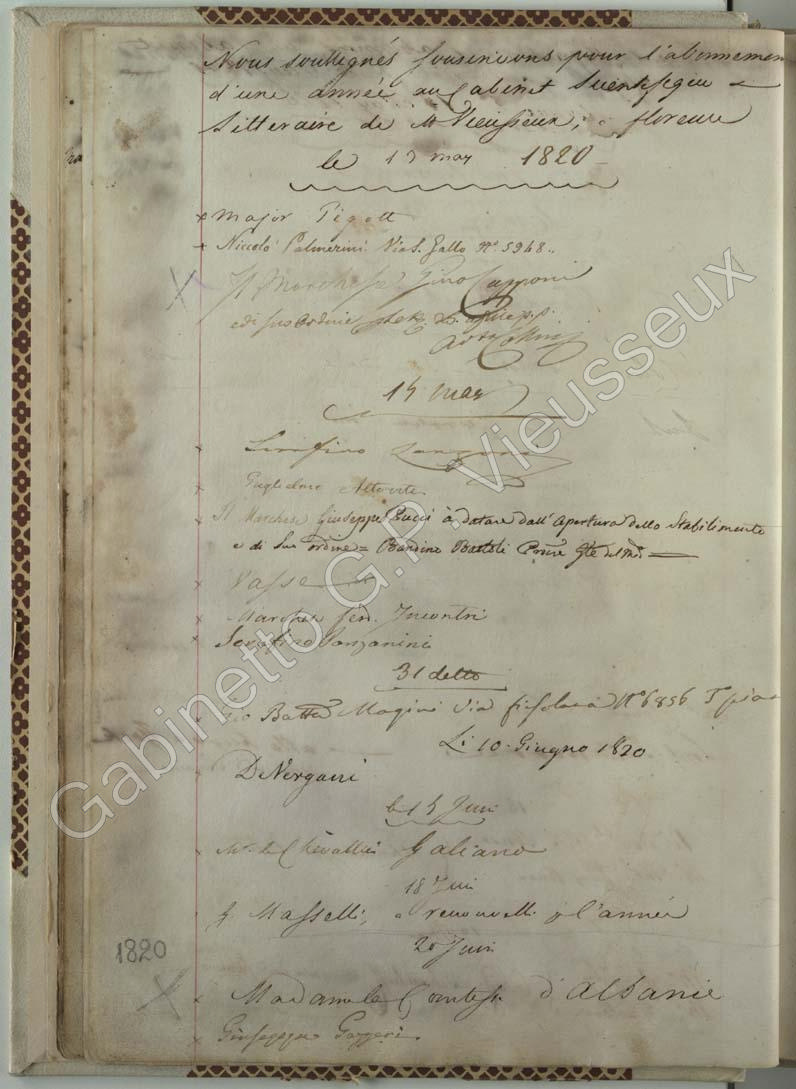 Nous soussignés souscrivons pour l'abonnement
d'une année au Cabinet Scientifique
Litteraire de Mr Vieusseux, a florence
le 13 may 1820
Major Pigott
Niccolò Palmerini Via S. Gallo N° 5948.
Il Marchese Gino Capponi
e di suo ordine
15 may
Serafino
Guglielmo Altoviti
Il Marchese Giuseppe Pucci à datare dall'Apertura dello Stabilimento
e di Suo ordine = Bandino Bartoli
Vasse
Marchese Ferd. Incontri
Serafino Sanzanini
31 detto
Gio Batta Magini Via fiesolana N° 6856
Li 10. Giugno 1820
De Nergani
le 15 Juin
Mr le Chevallier Galiano
18 Juin
Masselli, a l'année
20 Juin
Madame la Comtesse d'Albanie
Giuseppe Gazzeri
1820
Gabinetto G.P. Vieusseux